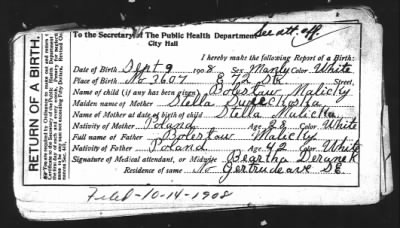 See att. aff.
To the Secretary of the Public Health Department
City Hall
I hereby make the following Report of a Birth:
Date of Birth Sept 9 1908 Sex Manly Color White
Place of Birth No 3607 E 72 St Street,
Name of child (if any has been given) Boleslaw Malicky
Maiden name of Mother Stella
Name of Mother at date of birth of child Stella Malicka
Nativity of Mother Poland Age 28 Color White
Full name of Father Boleslaw Malicky
Nativity of Father Poland Age 42 Color White
Signature of Medical attendant, or Midwife Beartha Deranek
Residence of same No Gertrudeave SE
Filed-10-14-1908
RETURN OF A BIRTH.